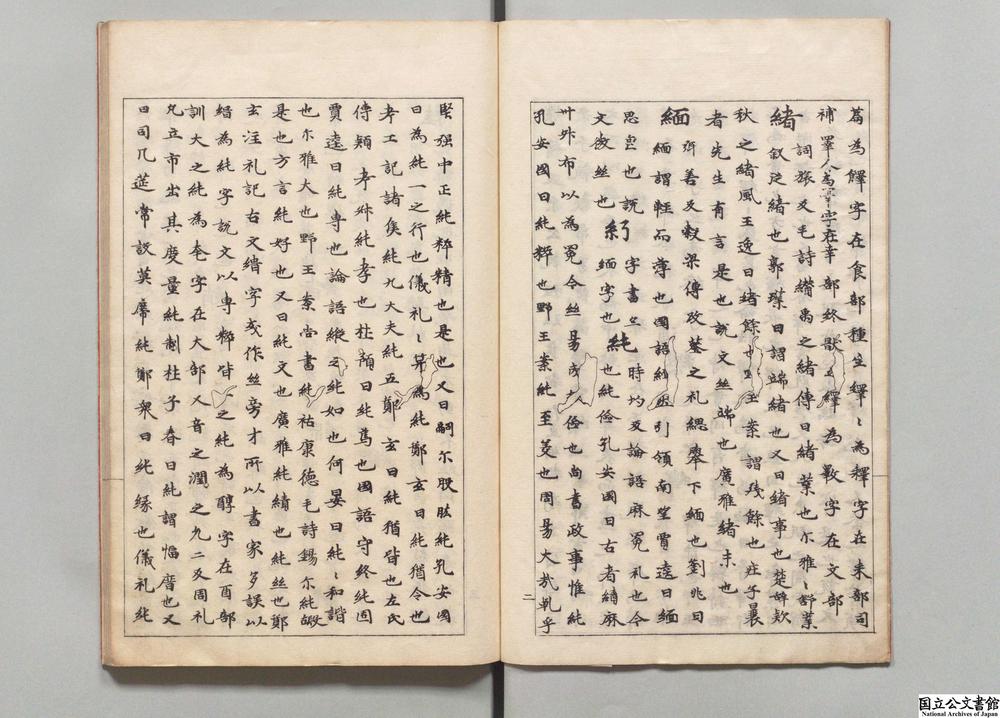 篇為䭞字在食部種生繹〻為釋字在釆部司
補睪人為睪字在幸部終斁𡈼繹為斁字在文部
緒詞旅反毛詩纘禹之緒傳曰緒業也尒雅〻舒業
叙從緒也郭璞曰謂端緒也又曰緒事也楚辝欵
秋之緒風王逸曰緒餘也野王案謂殘餘也庄子曩
者先生有言是也說文絲端也廣雅緒末也
緬弥善反穀梁傳改葬之礼緦舉下緬也劉兆曰
緬謂輕而薄也國語緬然引領南望賈逵曰緬
思皃也說紆字書亦時均反論語麻冕礼也今
文微絲也緬字也純也純儉孔安國曰古者績麻
卅升布以為冕今絲易成故人儉也尚書政事惟純
孔安國曰純粹也野王案純至美也周易大哉乹乎
堅强中正純粹精也是也又曰嗣尒股肱純孔安國
曰為純一之行也儀礼〻筭為純鄭玄曰純猶全也
考工記諸侯純九大夫純五鄭玄曰純猶皆也左氏
傳潁考叔純孝也杜預曰純篤也國語守終純固
賈逵曰純専也論語縱之純如也何晏曰純〻和諧
也尒雅大也野王案尚書純祜康德毛詩錫尒純嘏
是也方言純好也又曰純文也廣雅純績也純絲也鄭
玄注礼記古文緇字或作絲旁才所以書家多誤以
緇為純字說文以専粹皆之純為醇字在酉部
訓大之純為奄字在大部又音之潤之九二反周礼
凢立市出其度量純制杜子春曰純謂幅廣也又
曰司几筵常設莫席純鄭衆曰純縁也儀礼純
二
国立公文書館
National Archives of Japan